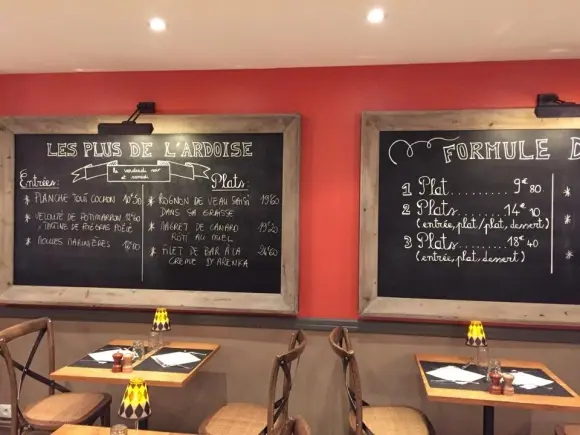 LES PLUS DE L'ARDOISE
le vendredi soir
et samedi
Entrées:
* PLANCHE TOUT COCHON 10€50
* VELOUTÉ DE POTIMARRON
TARTINE DE FOIE GRAS POÊLÉ
* MOULES MARINIÈRES
Plats:
* ROGNON DE VEAU SAISI 19€60
DANS SA GRAISSE
* MAGRET DE CANARD 19€20
RÔTI AU MIEL
* FILET DE BAR À LA
CREME D'ARENKA
FORMULE D
1 Plat......... 9€80
2 Plats....... 14€10
(entrée, plat/plat, dessert)
3 Plats....... 18€40
(entrée, plat, dessert)